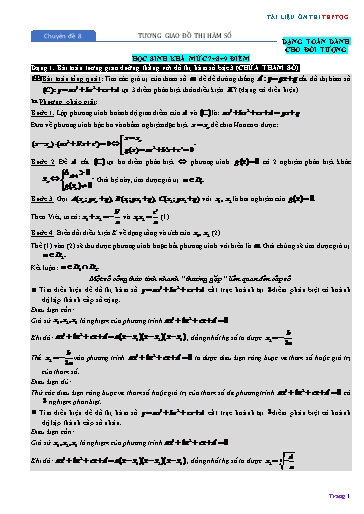 TÀI LIỆU ÔN THI THPTQG
Chuyên đề 8
TƯƠNG GIAO ĐỒ THỊ HÀM SỐ
DẠNG TOÁN DÀNH
CHO ĐỐI TƯỢNG
HỌC SINH KHÁ MỨC 7-8-9 ĐIỂM
Dạng 1. Bài toán tương giao đường thẳng với đồ thị hàm số bậc 3 (CHỨA THAM SỐ)
Bài toán tổng quát: Tìm các giá trị của tham số m để đường thẳng d: y = px + q cắt đồ thị hàm số
(C): y = ax³ + bx² + cx + d tại 3 điểm phân biệt thỏa điều kiện K? (dạng có điều kiện)
Phương pháp giải:
Bước 1. Lập phương trình hoành độ giao điểm của d và (C) là: ax³ + bx² + cx + d = px + q
Đưa về phương trình bậc ba và nhẩm nghiệm đặc biệt x = x₀ để chia Hoocner được:
(x − x₀).(ax² + b'x + c') = 0 ⇔ [x = x₀; g(x) = ax² + b'x + c' = 0
Bước 2. Để d cắt (C) tại ba điểm phân biệt ⇔ phương trình g(x) = 0 có 2 nghiệm phân biệt khác
x₀ ⇔ {Δg(x) > 0; g(x₀) ≠ 0. Giải hệ này, tìm được giá trị m ∈ D₁.
Bước 3. Gọi A(x₀; px₀ + q), B(x₁; px₁ + q), C(x₂; px₂ + q) với x₁, x₂ là hai nghiệm của g(x) = 0.
Theo Viét, ta có: x₁ + x₂ = −b'/a và x₁x₂ = c'/a (1)
Bước 4. Biến đổi điều kiện K về dạng tổng và tích của x₁, x₂ (2)
Thế (1) vào (2) sẽ thu được phương trình hoặc bất phương trình với biến là m. Giải chúng sẽ tìm được giá trị
m ∈ D₂.
Kết luận: m ∈ D₁ ∩ D₂.
Một số công thức tính nhanh "thường gặp" liên quan đến cấp số
Tìm điều kiện để đồ thị hàm số y = ax³ + bx² + cx + d cắt trục hoành tại 3 điểm phân biệt có hoành
độ lập thành cấp số cộng.
Điều kiện cần:
Giả sử x₁, x₂, x₃ là nghiệm của phương trình ax³ + bx² + cx + d = 0
Khi đó: ax³ + bx² + cx + d = a(x − x₁)(x − x₂)(x − x₃), đồng nhất hệ số ta được x₂ = −b/3a
Thế x₂ = −b/3a vào phương trình ax³ + bx² + cx + d = 0 ta được điều kiện ràng buộc về tham số hoặc giá trị
của tham số.
Điều kiện đủ:
Thử các điều kiện ràng buộc về tham số hoặc giá trị của tham số để phương trình ax³ + bx² + cx + d = 0 có
3 nghiệm phân biệt.
Tìm điều kiện để đồ thị hàm số y = ax³ + bx² + cx + d cắt trục hoành tại 3 điểm phân biệt có hoành
độ lập thành cấp số nhân.
Điều kiện cần:
Giả sử x₁, x₂, x₃ là nghiệm của phương trình ax³ + bx² + cx + d = 0
Khi đó: ax³ + bx² + cx + d = a(x − x₁)(x − x₂)(x − x₃), đồng nhất hệ số ta được x₂ = ∛(−d/a)
Trang 1